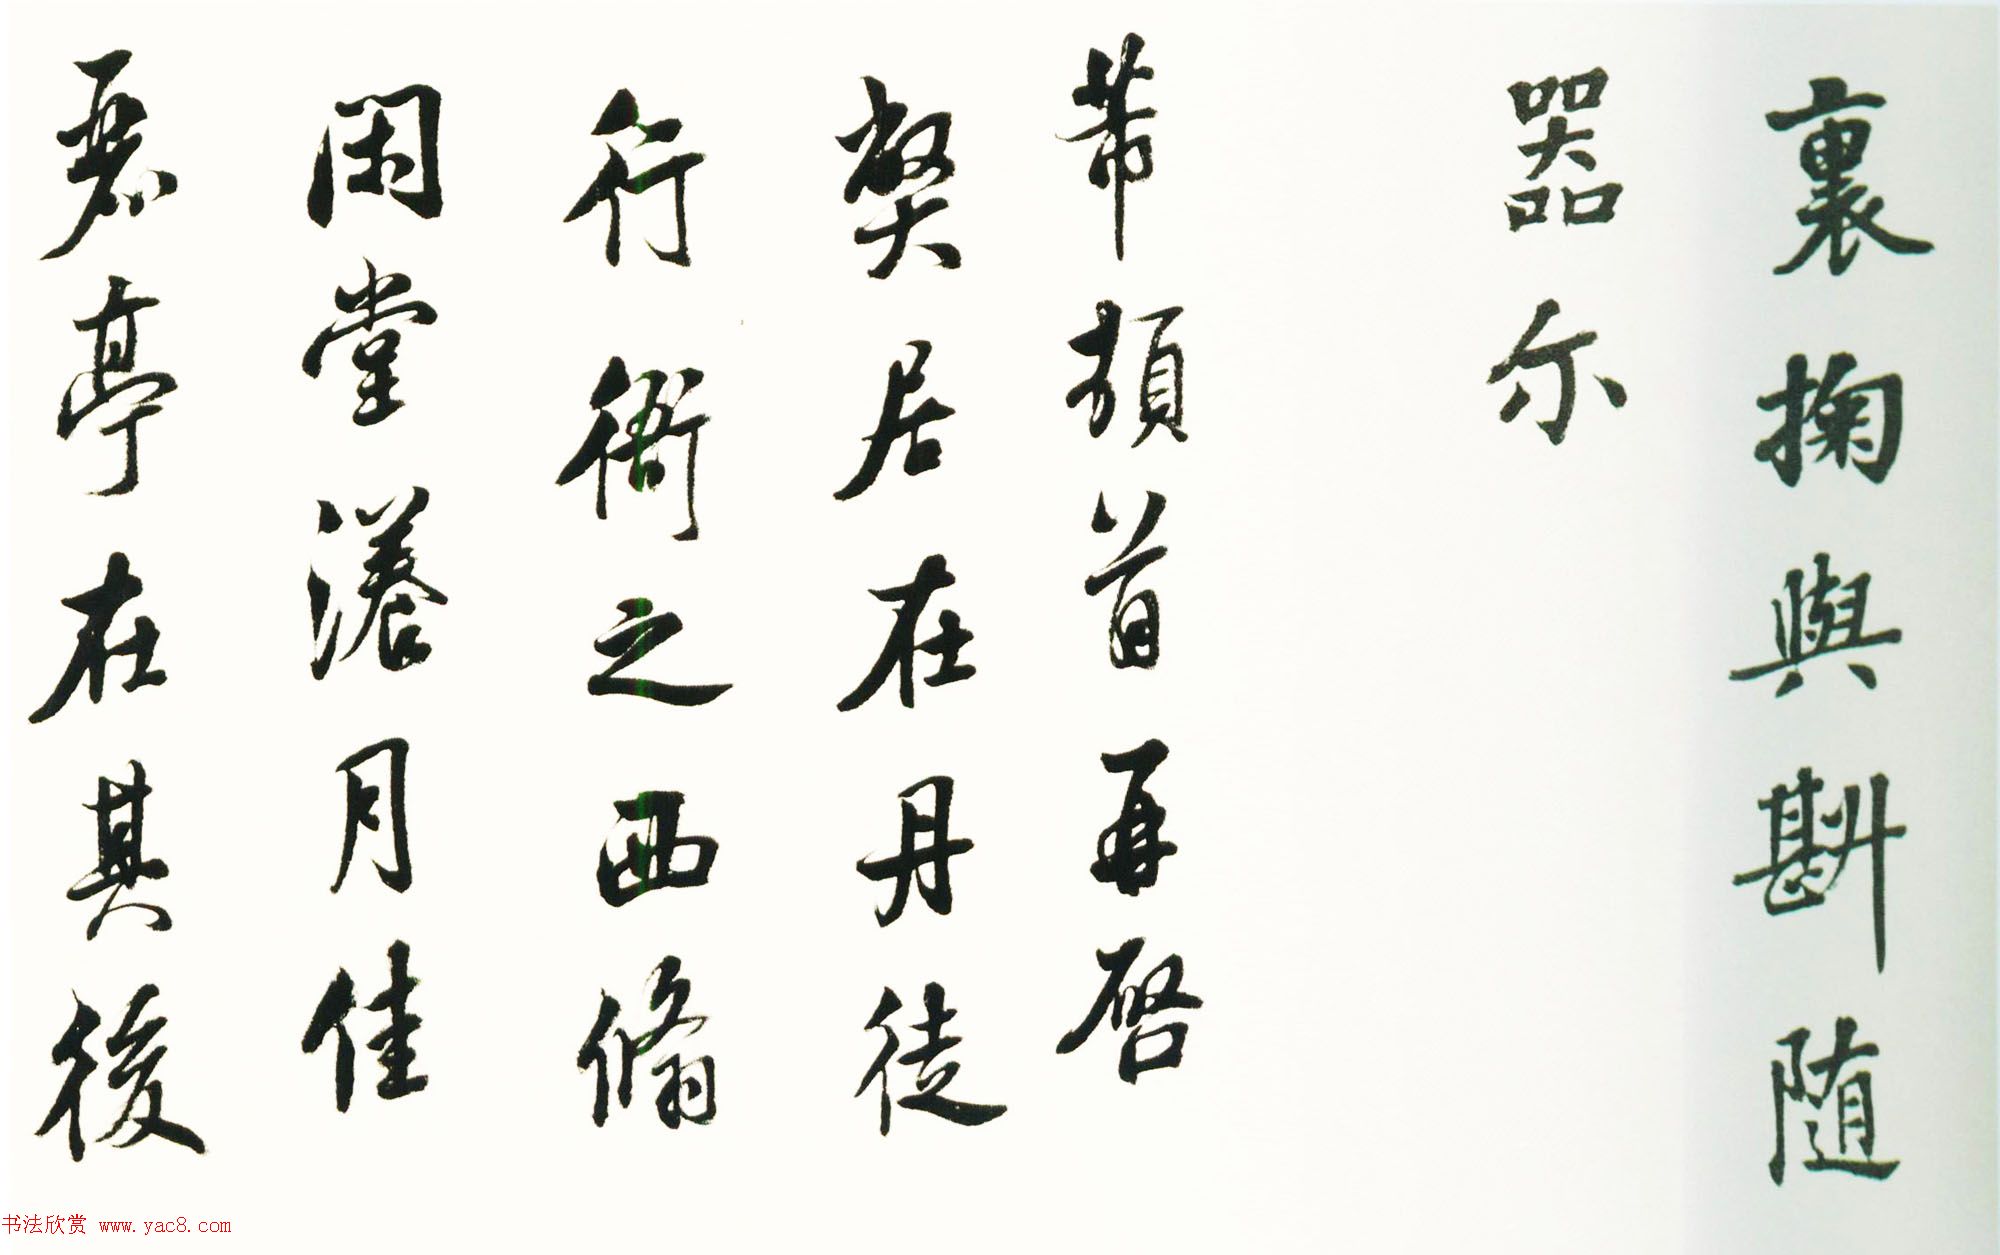 裏掬與斟随
器尔
芾頓首再啓
弊居在丹徒
行衙之西翛
閑堂漾月佳
麗亭在其後
书法欣赏 www.yac8.com